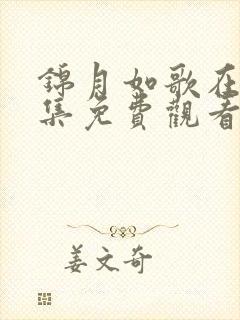 錦月如歌在
集免費觀看
姜文奇